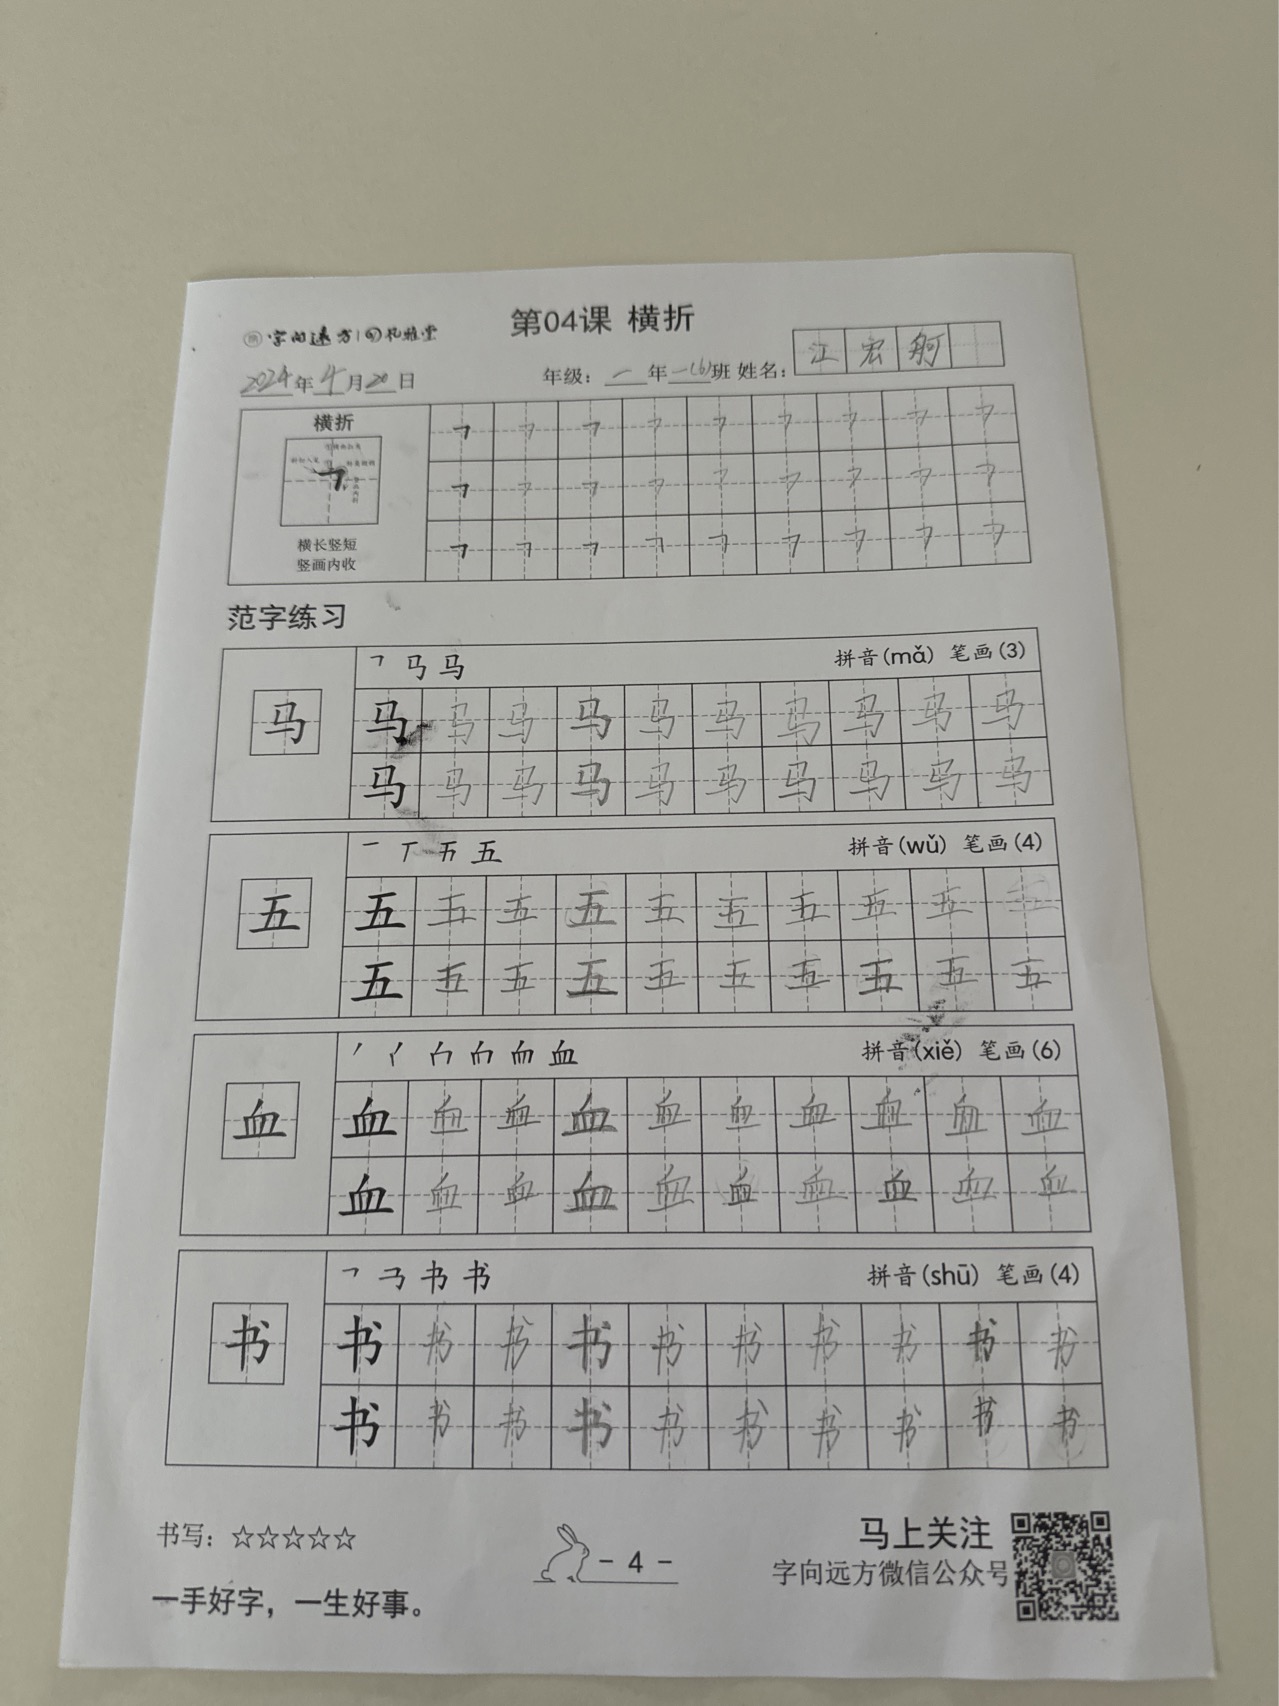 第04课 横折
字向远方 | 孔雅堂
江宏舸
2024年4月20日
年级：一年一(6)班 姓名：
横折
横长竖短
竖画内收
范字练习
拼音(mǎ) 笔画(3)
马 马 马 马 马 马 马 马 马 马 马
马 马 马 马 马 马 马 马 马 马
拼音(wǔ) 笔画(4)
五 五 五 五 五 五 五 五 五 五 五
五 五 五 五 五 五 五 五 五 五
拼音(xiě) 笔画(6)
血 血 血 血 血 血 血 血 血 血 血
血 血 血 血 血 血 血 血 血 血
拼音(shū) 笔画(4)
书 书 书 书 书 书 书 书 书 书 书
书 书 书 书 书 书 书 书 书 书
书写：☆☆☆☆☆
- 4 -
马上关注
字向远方微信公众号
一手好字，一生好事。